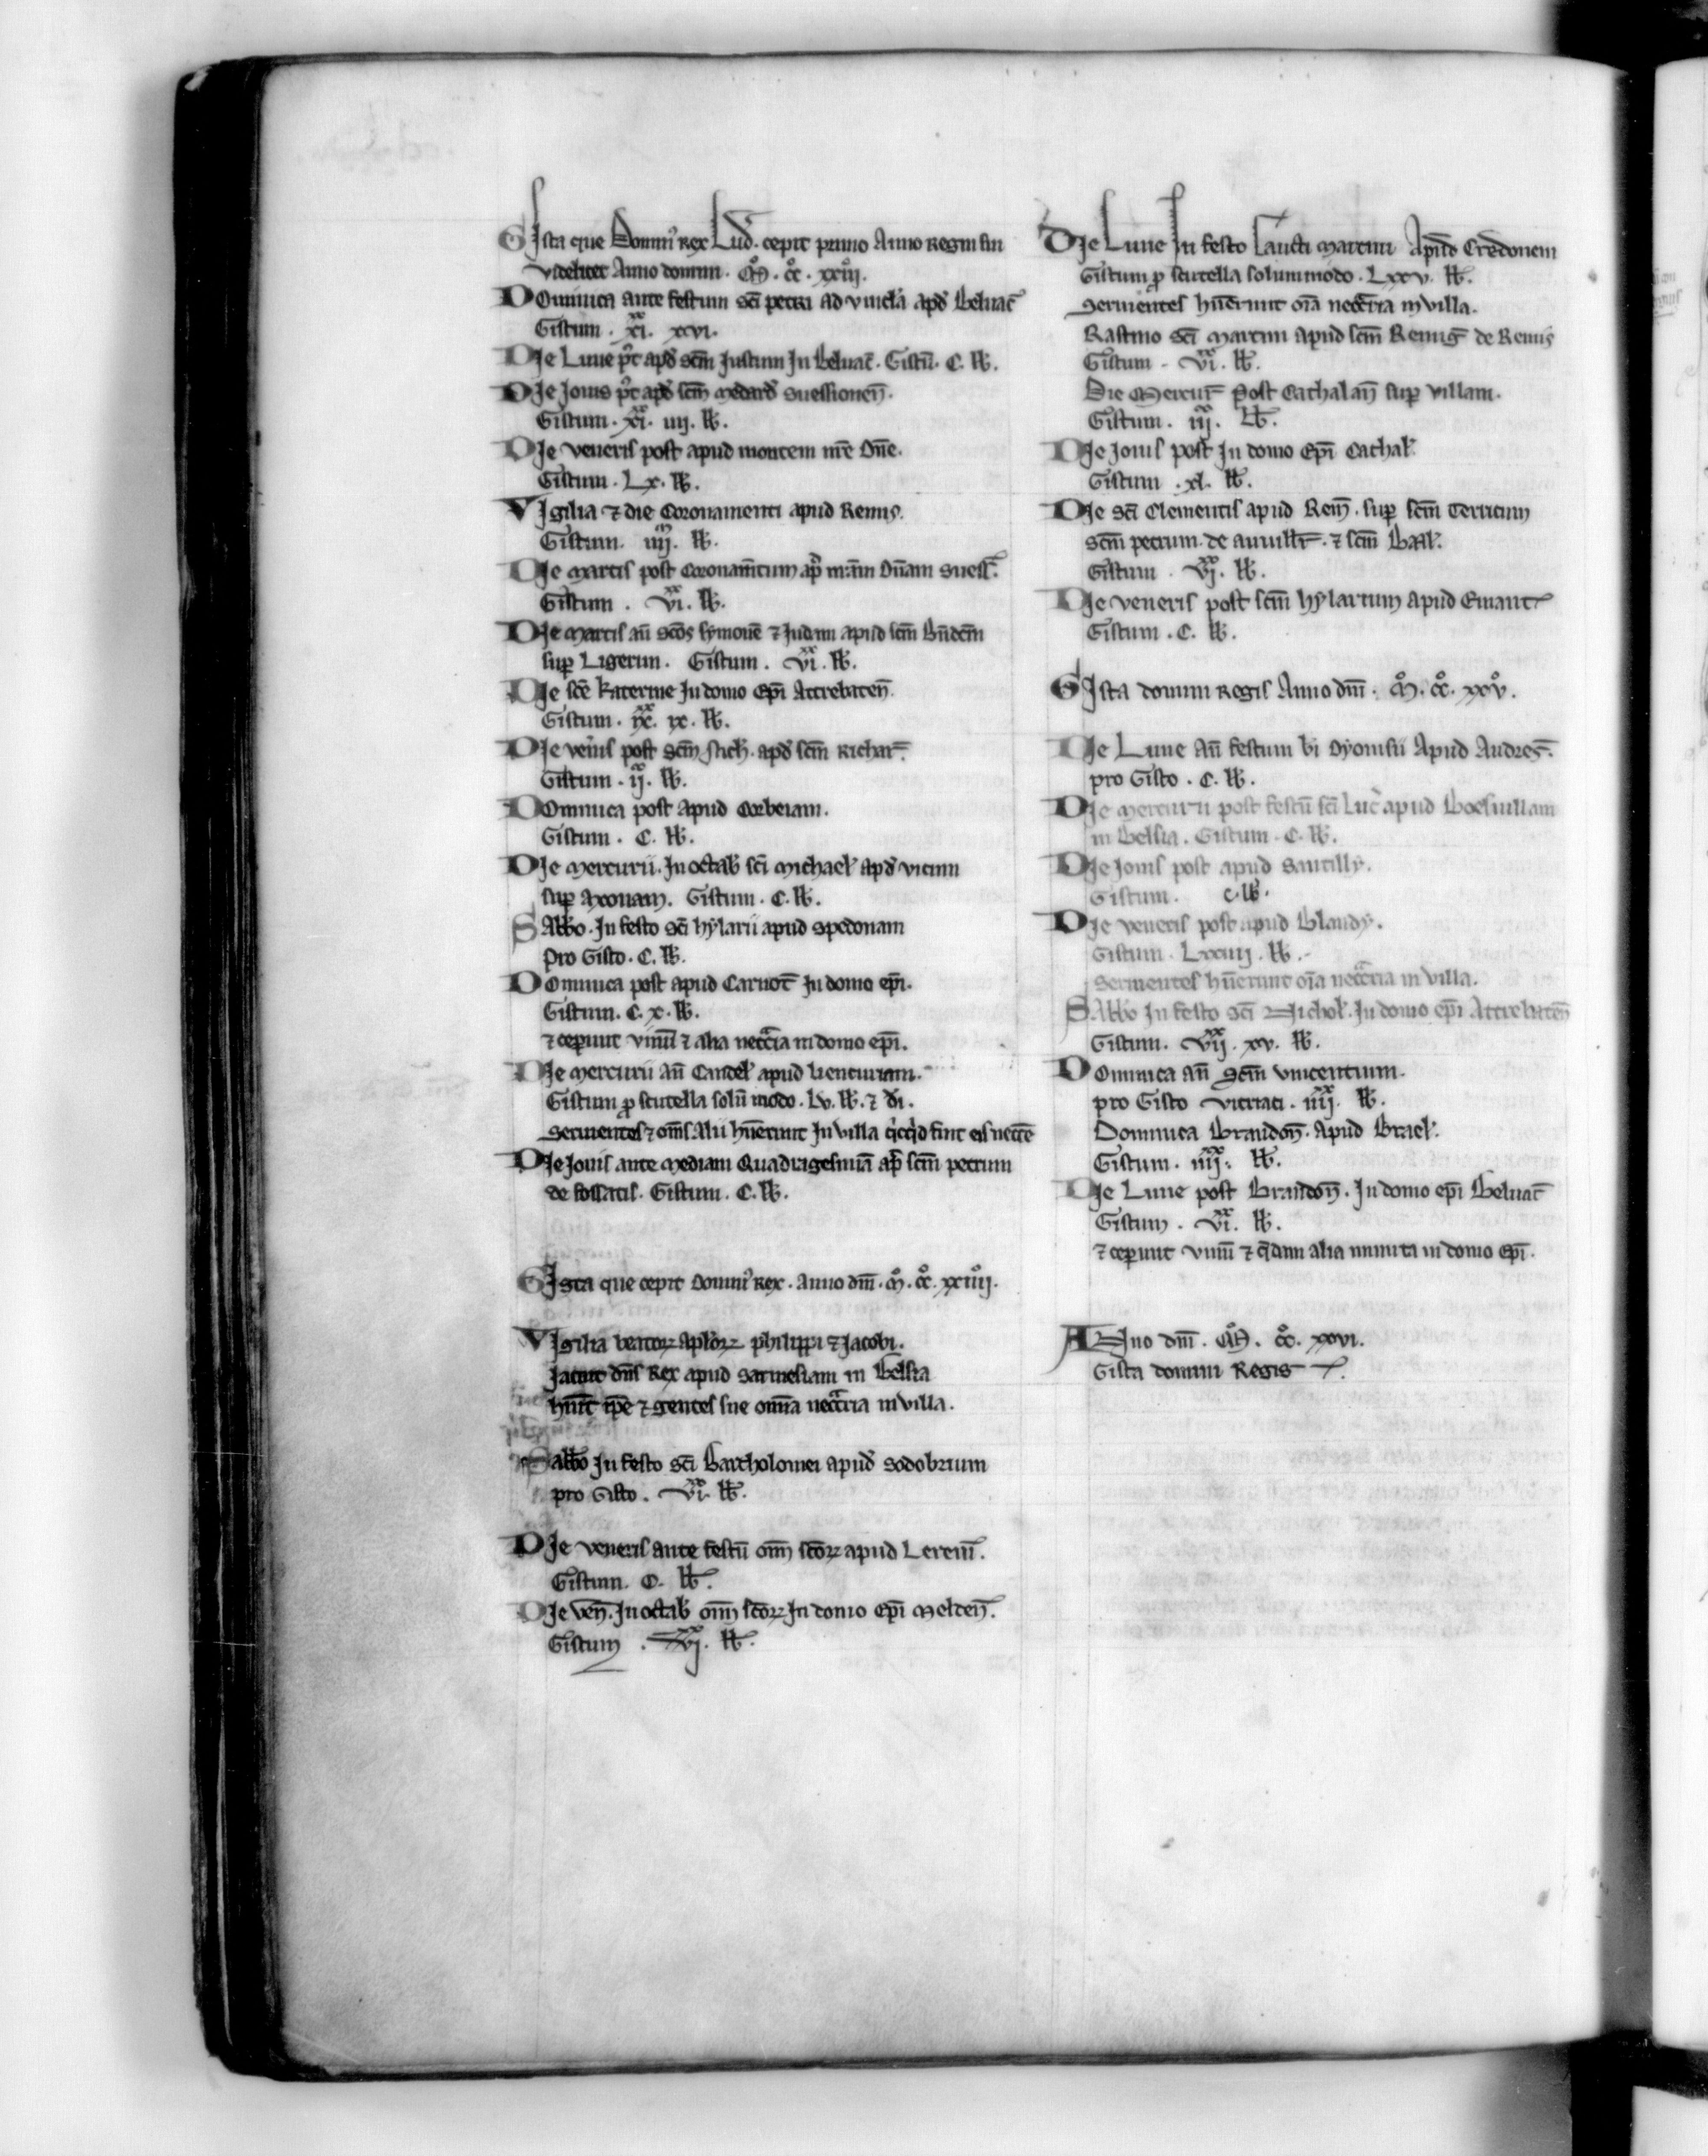 GIsta que Domin᾽ Rex Lud᾽. cepit primo Anno Regni sui
videlicet Anno domini. M̊. cc̊. xxiij̊.
DOminica ante festum sc̄i petri ad vincl̃a apd̕ Beluac̄
Gistum. xi^xx. xvi.
DIe Lune p᾽t apd̕ sc̄m Justum In Beluac̄. Gistū. C. lb̵.
DIe Jouis p᾽t apd̕ sc̄m Medard̕ Suessionen̄.
Gistum. xi^xx. iiij. lb̵.
DIe veneris post apud montem nr̄e Dn̄e.
Gistum. Lx. lb̵.
VIgilia ⁊ die Coronamenti apud Remis.
Gistum. iiij^m. lb̵.
DIe martis post Coronam̄tum ap᾽ Dn̄am Suess̄.
Gistum. vi^xx. lb̵.
DIe Martis an̄ Sc̄os symonē ⁊ Judam apud sc̄m Bn̄dcm̄
sup̱ Ligerim. Gistum. vi^xx. lb̵.
DIe sc̄e Katerine In domo Ep̄i Attrebaten̄.
Gistum. ix^xx. ix. lb̵.
DIe ven᾽is post Sc̄m Nich̵. apd̕ sc̄m Richar̄.
Gistum. ij^c. lb̵.
DOminica post apud Corbeiam.
Gistum. C. lb̵.
DIe mercurii. In octab̵ sc̄i Michael̵ apd̕ vicum
sup̱ Axonam. Gistum. C. lb̵.
SAbb̵o. In festo sc̄i hylarii apud Spedonam
pro Gisto. C. lb̵.
DOminica post apud Carnot̄ In domo ep̄i.
Gistum. C. x. lb̵.
⁊ ceperunt vinū ⁊ alia necc̄ria in domo ep̄i.
DIe mercurii an̄ Candel̵ apud
Gistum p̱ scutella solū modo. lv. lb̵. ⁊ di̵.
Seruientes ⁊ om̄s Alii hūerunt In villa q᾽cq᾽d fuit eis necc̄e
DIe Jouis ante mediam Quadragesimā ap᾽ sc̄m petrum
de fossatis. Gistum. C. lb̵.
GIsta que cepit Domin᾽ Rex. Anno dn̄i. M̊. cc̊. xxiiij̊.
VIgilia beatoꝝ Apl̵oꝝ philippi ⁊ Jacobi.
Jacuit dn̄s Rex apud Sarmesiam in Belsia
hūer̄t ip̄e ⁊ gentes sue omnia necc̄ria in villa.
Sabb̵o In festo sc̄i Bartholomei apud̕ Sodobrium
pro Gisto. vi^xx lb̵.
DIe veneris ante festū om̄ sc̄oꝝ apud Lerem̄.
Gistum. C. lb̵.
DIe ven̄. In octab̵ om̄ sc̄oꝝ In domo Ep̄i Melden̄.
Gistum. vj^xx. lb̵.
DIe Lune In festo Sancti Martini Apud Credonem
Gistum p̱ scutella solummodo. Lxxv. lb̵.
Seruientes hūerunt oīa necc̄ria in villa.
Rastino sc̄i Martini apud sc̄m Remiḡ de Remis
Gistum. vi^xx. lb̵.
Die Mercur̄ post Cathalan̄ sup̱ villam.
Gistum. iij^c. lb̵.
DIe Jouis post In domo Ep̄i Cathal̵.
Gistum. xl. lb̵.
DIe sc̄i Clementis apud Rem̄. sup̱ sc̄m Terricum
sc̄m petrum. de auuill̵r̄. ⁊ sc̄m Basl̵.
Gistum. vj^xx. lb̵.
DIe veneris post sc̄m hylarium apud Emant
Gistum. C. lb̵.
GIsta domini Regis Anno dn̄i. M̊. cc̊. xxv̊.
DIe Lune An̄ festum bi̵ Dyonisii Apud Andres̄.
pro Gisto. C. lb̵.
DIe mercurii post festū sc̄i Luc̕ apud Boesuillam
in Belsia. Gistum. C. lb̵.
DIe Jouis post apud Santilly.
Gistum. C. lb̵.
DIe veneris post apud Blandy.
Gistum. Lxxiiij. lb̵.
Seruientes hūerunt oīa necc̄ria in villa.
SAbb̵o In festo sc̄i Nichol̵. In domo ep̄i Attrebaten̄
Gistum. vij^xx. xv. lb̵.
DOminica an̄ Sc̄m vincentium.
pro Gisto vitriaci. iiij^xx. lb̵.
Dominica Brandon̄. Apud Brael̵.
Gistum. iiij^xx. lb̵.
DIe Lune post Brandon̄. In domo ep̄i Beluac̄
Gistum. vi^xx. lb̵.
⁊ ceperunt vinū ⁊ q̄dam alia minuta in domo Ep̄i.
ANno dn̄i. M̊. cc̊. xxvi.
Gista domini Regis